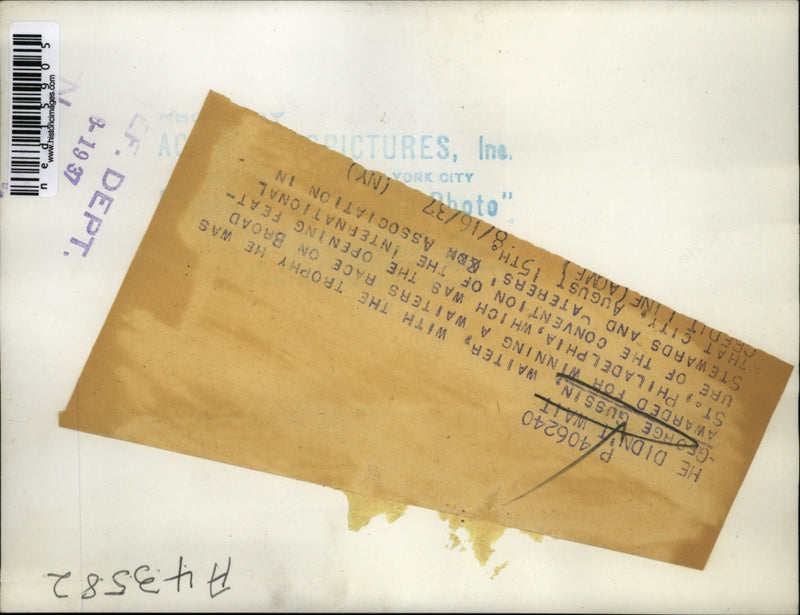 P 406240
HE DIDN'T WAIT
GEORGE GUSSIN, WAITER, WITH THE TROPHY HE WAS
AWARDED FOR WINNING A WAITERS RACE ON BROAD
ST., PHILADELPHIA, WHICH WAS THE OPENING FEAT-
URE OF THE CONVENTION OF THE INTERNATIONAL
STEWARDS AND CATERERS, ASSOCIATION IN
THAT CITY, AUGUST 15TH.
CREDIT LINE (ACME) 8/16/37 (NY)
PICTURES, Inc.
YORK CITY
Photo"
EF. DEPT.
9-1937
ned15905
www.historicimages.com
A43582